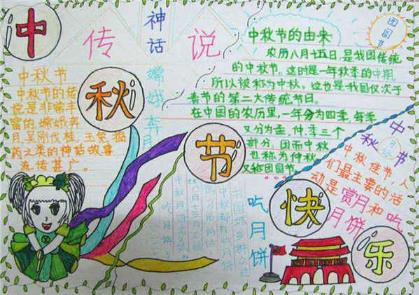 中秋节快乐
神话传说
中秋节
中秋节的传
说是非常丰
富的,嫦娥奔
月,吴刚伐桂,玉兔捣
药之类的神话故事
流传甚广。
嫦娥奔月
中秋节的由来
农历八月十五日,是我国传统
的中秋节。这时是一年秋季的中期,
所以被称为中秋。这也是我国仅次于
春节的第二大传统节日。
在中国的农历里,一年分为四季,每季
又分为孟、仲、季三个
部分,因而中秋
也称为仲秋
又称团圆节
团圆节
中秋节
中秋佳节,人
们最主要的活
动是赏月和吃
月饼
吃月饼